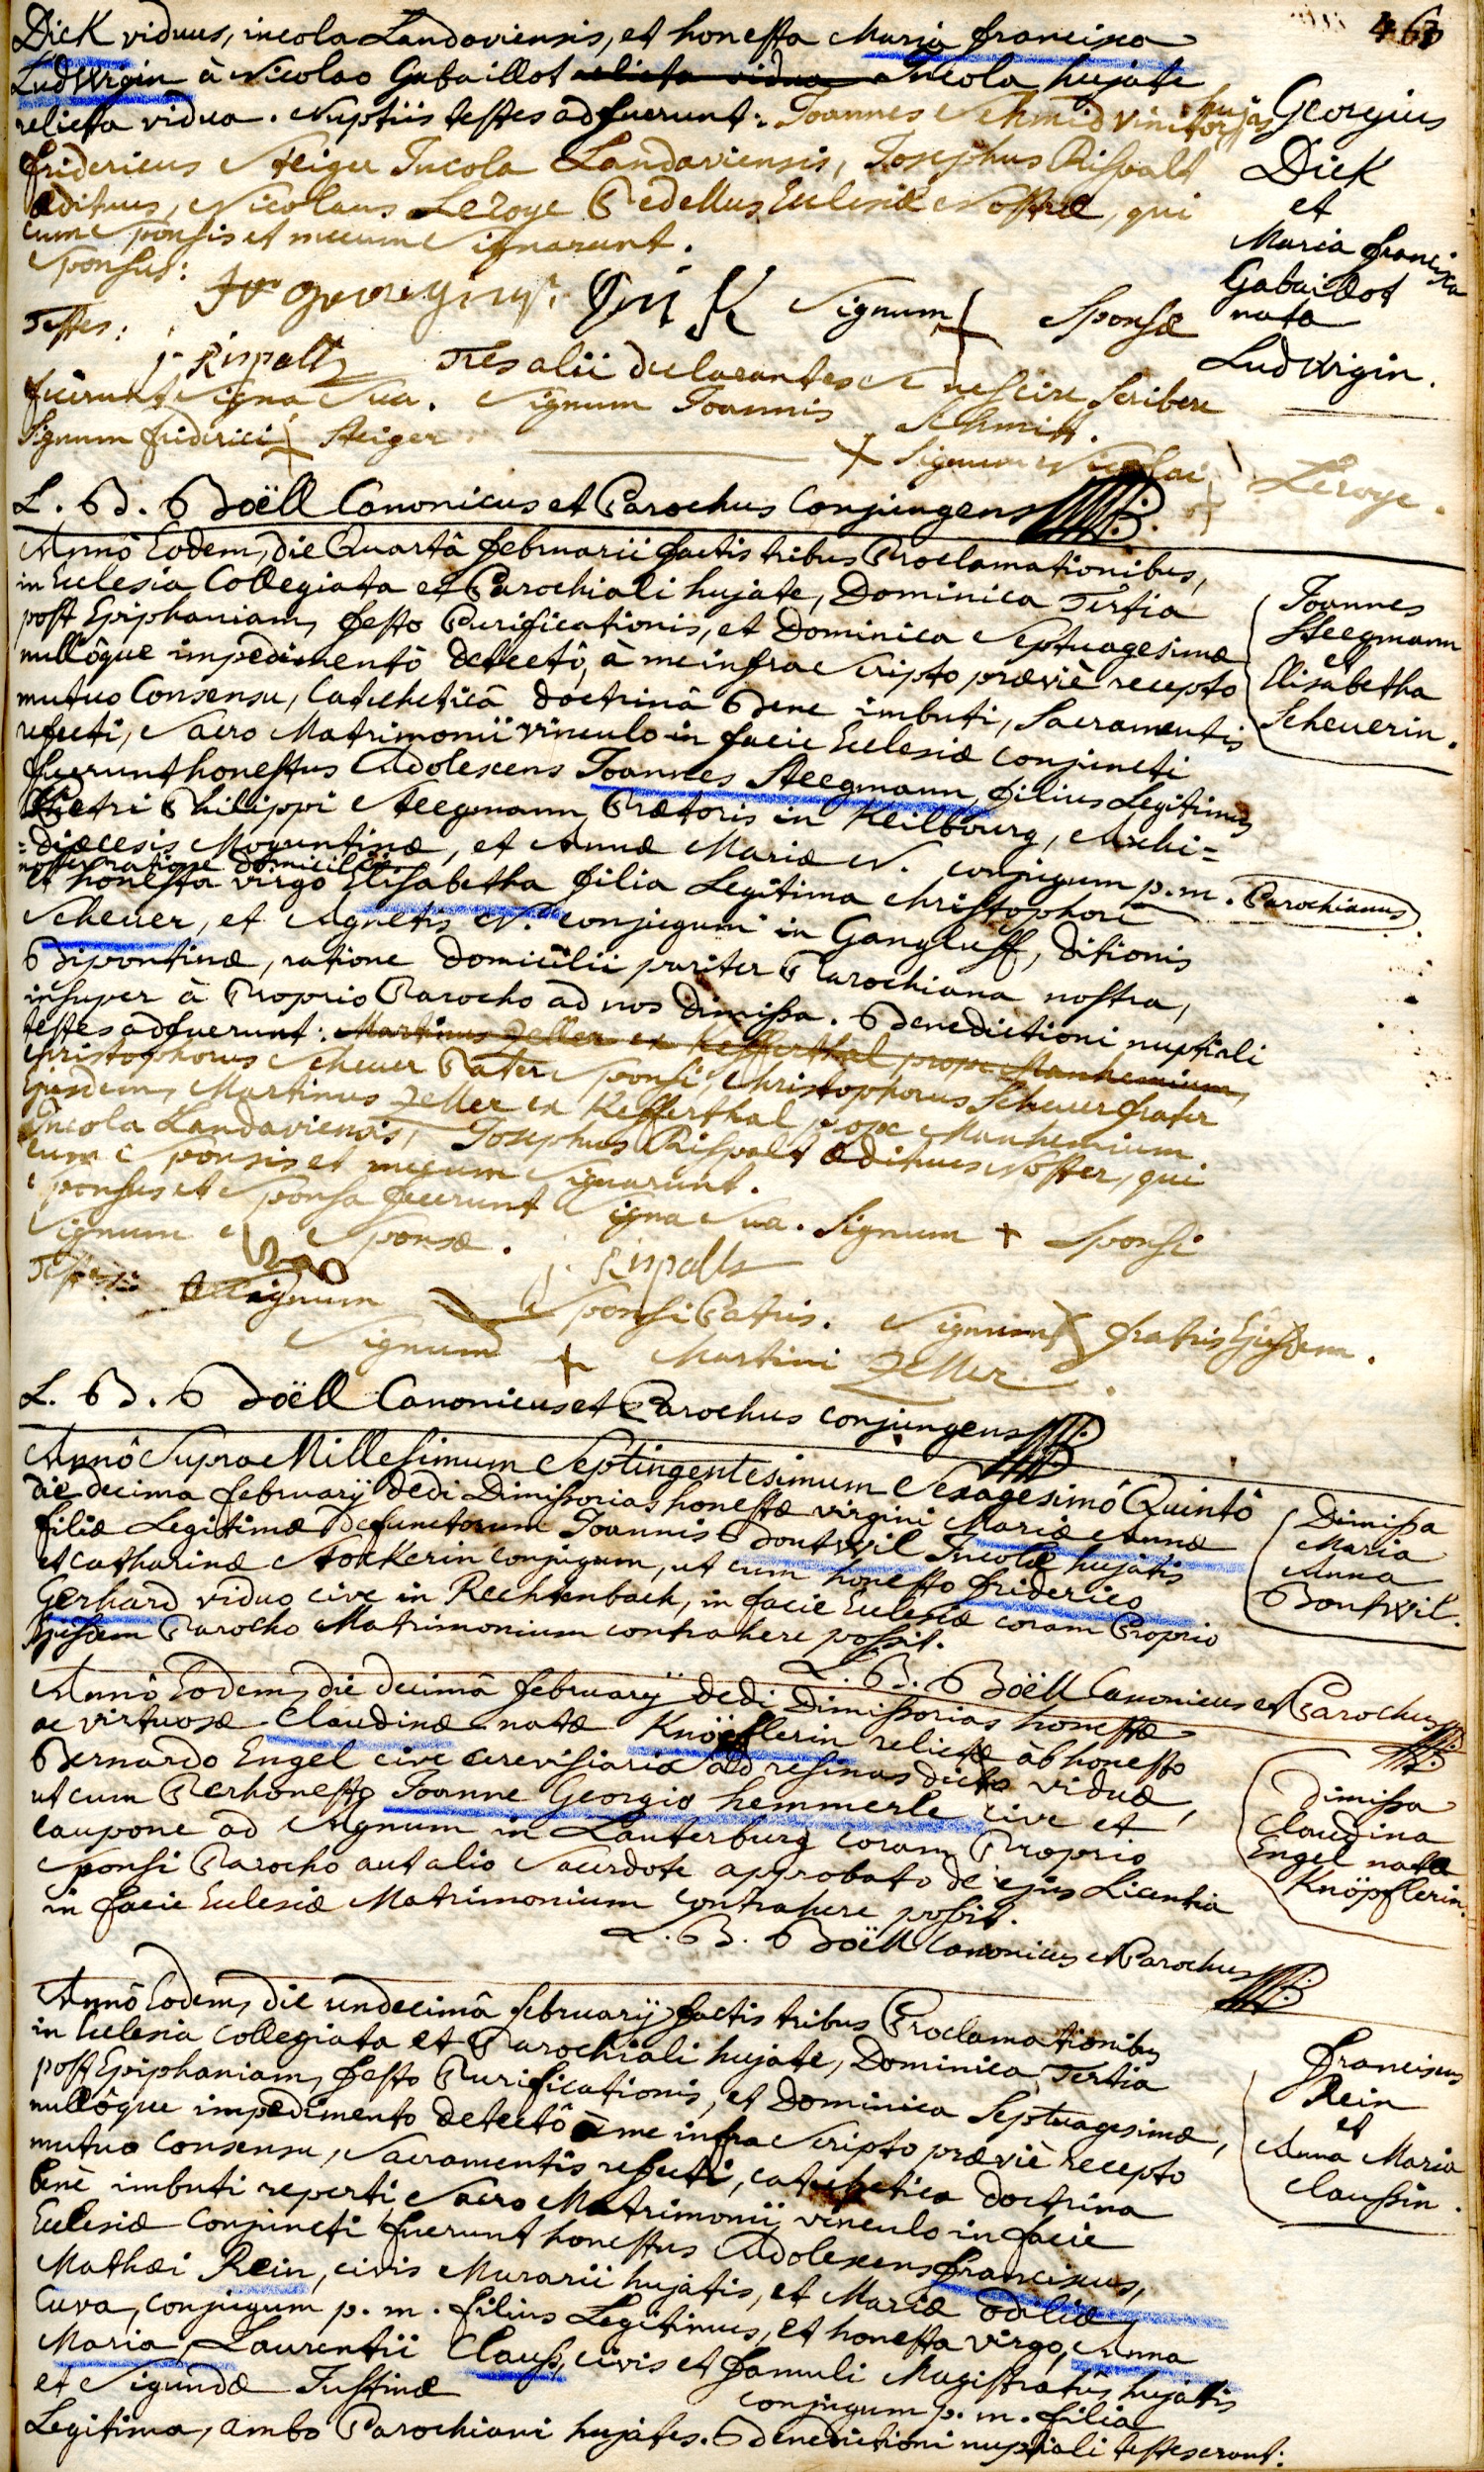 463
Dick viduus, incola Landaviensis, et honesta Maria francisca
Ludwigin à Nicolao Gabaillot relicta vidua Incola hujate
relicta vidua. Nuptiis testes adfuerunt: Joannes Schmid vinitor hujas
fridericus Steiger Incola Landaviensis, Josephus Rispalt
ædituus, Nicolaus Leroye Bedellus Ecclesiæ Nostræ, qui
cum sponsis et mecum signarunt.
Georgius
Dick
et
Maria francisca
Gabaillot
nata
Ludwigin.
Sponsus: georgius Dick Signum + Sponsæ
Testes: j. Rispalt Tres alii declarantes se nescire scribere
fecerunt signa sua. Signum Joannis Schmitt.
Signum friderici + Steiger + Signum Nicolai + Leroye.
L. B. Boëll Canonicus et Parochus Conjungens
Annô Eodem, die Quartâ februarii factis tribus Proclamationibus,
in Ecclesia Collegiata et Parochiali hujate, Dominica Tertia
post Epiphaniam, festo Purificationis, et Dominica Septuagesimæ
nullôque impedimentô detectô, à me infra scripto præviè recepto
mutuo Consensu, Catecheticâ doctrinâ Bene imbuti, Sacramentis
refecti, Sacro Matrimonii vinculo in facie Ecclesiæ conjuncti
fuerunt honestus Adolescens Joannes Steegmann, filius Legitimus
Petri Philippi Steegmann Prætoris in Keilbourg, Archi=
=diœcesis Moguntinæ, et Annæ Mariæ N. conjugum p. m. Parochianus
noster ratione domicilii
et honesta virgo Elisabetha filia Legitima Christophori
Scheuer, et Agnetis N. conjugum in Gangluff, ditionis
Bipontinæ, ratione Domicilii pariter Parochiana nostra,
insuper à Proprio Parocho ad nos dimissa. Benedictioni nuptiali
testes adfuerunt: Martinus Zeller ex Kefferthal prope Manhemium,
Christophorus Scheuer Pater Sponsi, Christophorus Scheuer frater
Ejusdem, Martinus Zeller ex Kefferthal prope Manhemium
Incola Landaviensis, Josephus Rispalt Ædituus Noster, qui
cum sponsis et mecum signarunt.
Joannes
Steegmann
et
Elisabetha
Scheuerin.
Sponsus et Sponsa fecerunt Signa Sua. Signum + Sponsi
Signum Sponsæ. j. Rispalt
Testes: Signum Sponsi Patris. Signum fratris Ejusdem.
Signum + Martini Zeller.
L. B. Boëll Canonicus et Parochus conjungens
Annô Supra Millesimum Septingentesimum Sexagesimô Quintô
die decima februarÿ dedi Dimissorias honestæ virgini Mariæ Annæ
filiæ Legitimæ defunctorum Joannis Bontwil Incolæ hujatis
et Catharinæ Stockerin conjugum, ut cum honesto friderico
Gerhard viduo cive in Rechtenbach, in facie Ecclesiæ coram Proprio
Ipsorum Parocho Matrimonium contrahere possit.
L. B. Boëll Canonicus et Parochus
Dimissa
Maria
Anna
Bontwil.
Annô Eodem, die decimâ februarÿ dedi Dimissorias honestæ
ac virtuosæ Claudinæ natæ Knöpflerin relictæ ab honesto
Bernardo Engel cive cerevisiario ad resinas dicto viduæ,
ut cum Perhonesto Joanne Georgio hemmerle cive et
caupone ad Agnum in Lauterburg coram Proprio
Sponsi Parocho aut alio Sacerdote approbato de ejus Licentia
in facie Ecclesiæ Matrimonium contrahere possit.
L. B. Boëll Canonicus et Parochus
Dimissa
Claudina
Engel nata
Knöpflerin.
Annô Eodem, die undecimâ februarÿ factis tribus Proclamationibus
in Ecclesia Collegiata et Parochiali hujate, Dominica Tertia
post Epiphaniam, festo Purificationis, et Dominica Septuagesimæ,
nullôque impedimento detectô à me infra scripto præviè recepto
mutuo consensu, Sacramentis refecti, catechetica doctrina
benè imbuti reperti Sacro Matrimonii vinculo in facie
Ecclesiæ Conjuncti fuerunt honestus Adolescens franciscus,
Mathæi Rein, civis Murarii hujatis, et Mariæ Odiliæ
Cuva, conjugum p. m. filius Legitimus, et honesta virgo, Anna
Maria, Laurentii Clauss, civis et famuli Magistratûs hujatis
et Sigundæ Justinæ conjugum p. m. filia
Legitima, ambo Parochiani hujates. Benedictioni nuptiali testes erant:
franciscus
Rein
et
Anna Maria
Claussin.